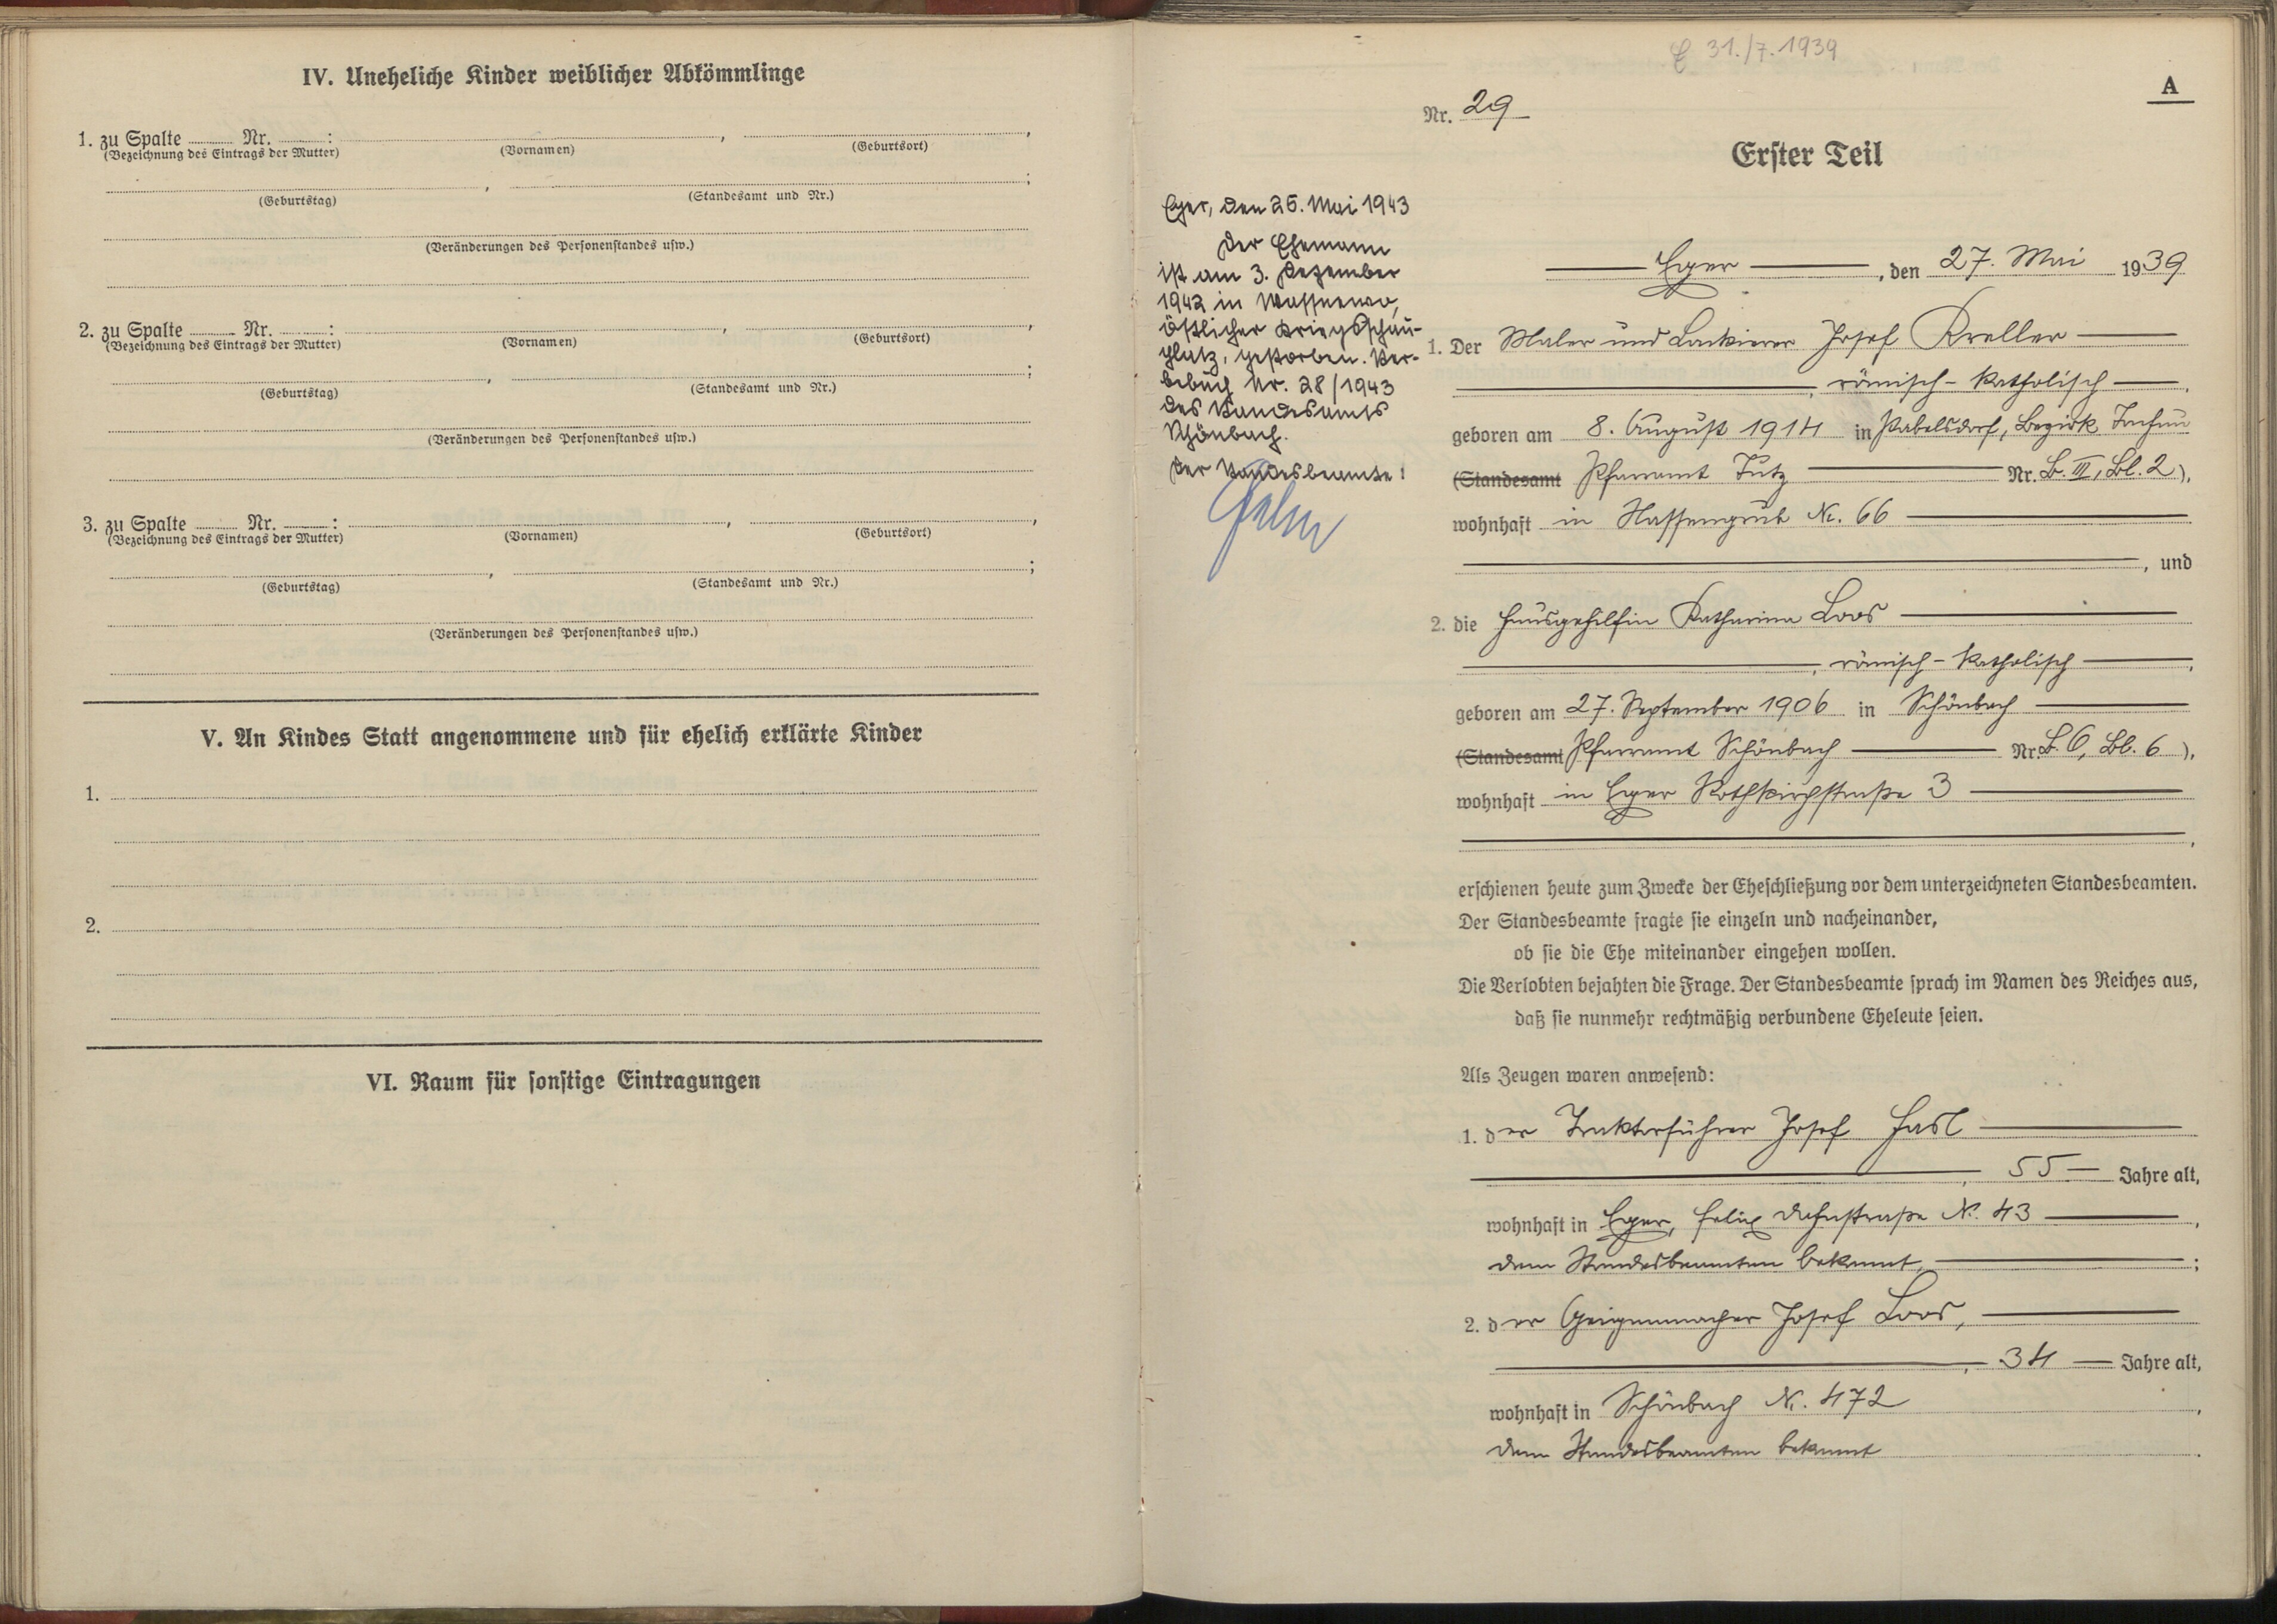 IV. Uneheliche Kinder weiblicher Abkömmlinge
1. zu Spalte ........ Nr. ........:
(Bezeichnung des Eintrags der Mutter) (Vornamen) , (Geburtsort) ,
(Geburtstag) , (Standesamt und Nr.) ;
(Veränderungen des Personenstandes usw.)
2. zu Spalte ........ Nr. ........:
(Bezeichnung des Eintrags der Mutter) (Vornamen) , (Geburtsort) ,
(Geburtstag) , (Standesamt und Nr.) ;
(Veränderungen des Personenstandes usw.)
3. zu Spalte ........ Nr. ........:
(Bezeichnung des Eintrags der Mutter) (Vornamen) , (Geburtsort) ,
(Geburtstag) , (Standesamt und Nr.) ;
(Veränderungen des Personenstandes usw.)
V. An Kindes Statt angenommene und für ehelich erklärte Kinder
1.
2.
VI. Raum für sonstige Eintragungen
31./7. 1939
A
Nr. 29
Erster Teil
Eger, den 26. Mai 1943
Der Ehemann
ist am 3. Dezember
1942 in
östlicher Kriegsschau-
platz, gestorben. Ster-
bebuch Nr. 28/1943
des Standesamts
Schönbach.
Der Standesbeamte:
Eger, den 27. Mai 1939
1. Der Maler und Lackierer Josef Kreller
, römisch-katholisch ,
geboren am 8. August 1914 in Pabelsdorf, Bezirk Tachau
(Standesamt Pfarramt Tutz Nr. B. III, Bl. 2),
wohnhaft in Hassengrub Nr. 66
, und
2. die Hausgehilfin Katharina Loos
, römisch-katholisch ,
geboren am 27. September 1906 in Schönbach
(Standesamt Pfarramt Schönbach Nr. B. 6, Bl. 6),
wohnhaft in Eger Rothkirchstraße 3
,
erschienen heute zum Zwecke der Eheschließung vor dem unterzeichneten Standesbeamten.
Der Standesbeamte fragte sie einzeln und nacheinander,
ob sie die Ehe miteinander eingehen wollen.
Die Verlobten bejahten die Frage. Der Standesbeamte sprach im Namen des Reiches aus,
daß sie nunmehr rechtmäßig verbundene Eheleute seien.
Als Zeugen waren anwesend:
1. der Traktorführer Josef Hasl
, 55 Jahre alt,
wohnhaft in Eger, Felix Dahnstraße Nr. 43 ,
dem Standesbeamten bekannt, ;
2. der Geigenmacher Josef Loos,
, 34 Jahre alt,
wohnhaft in Schönbach Nr. 472 ,
dem Standesbeamten bekannt .